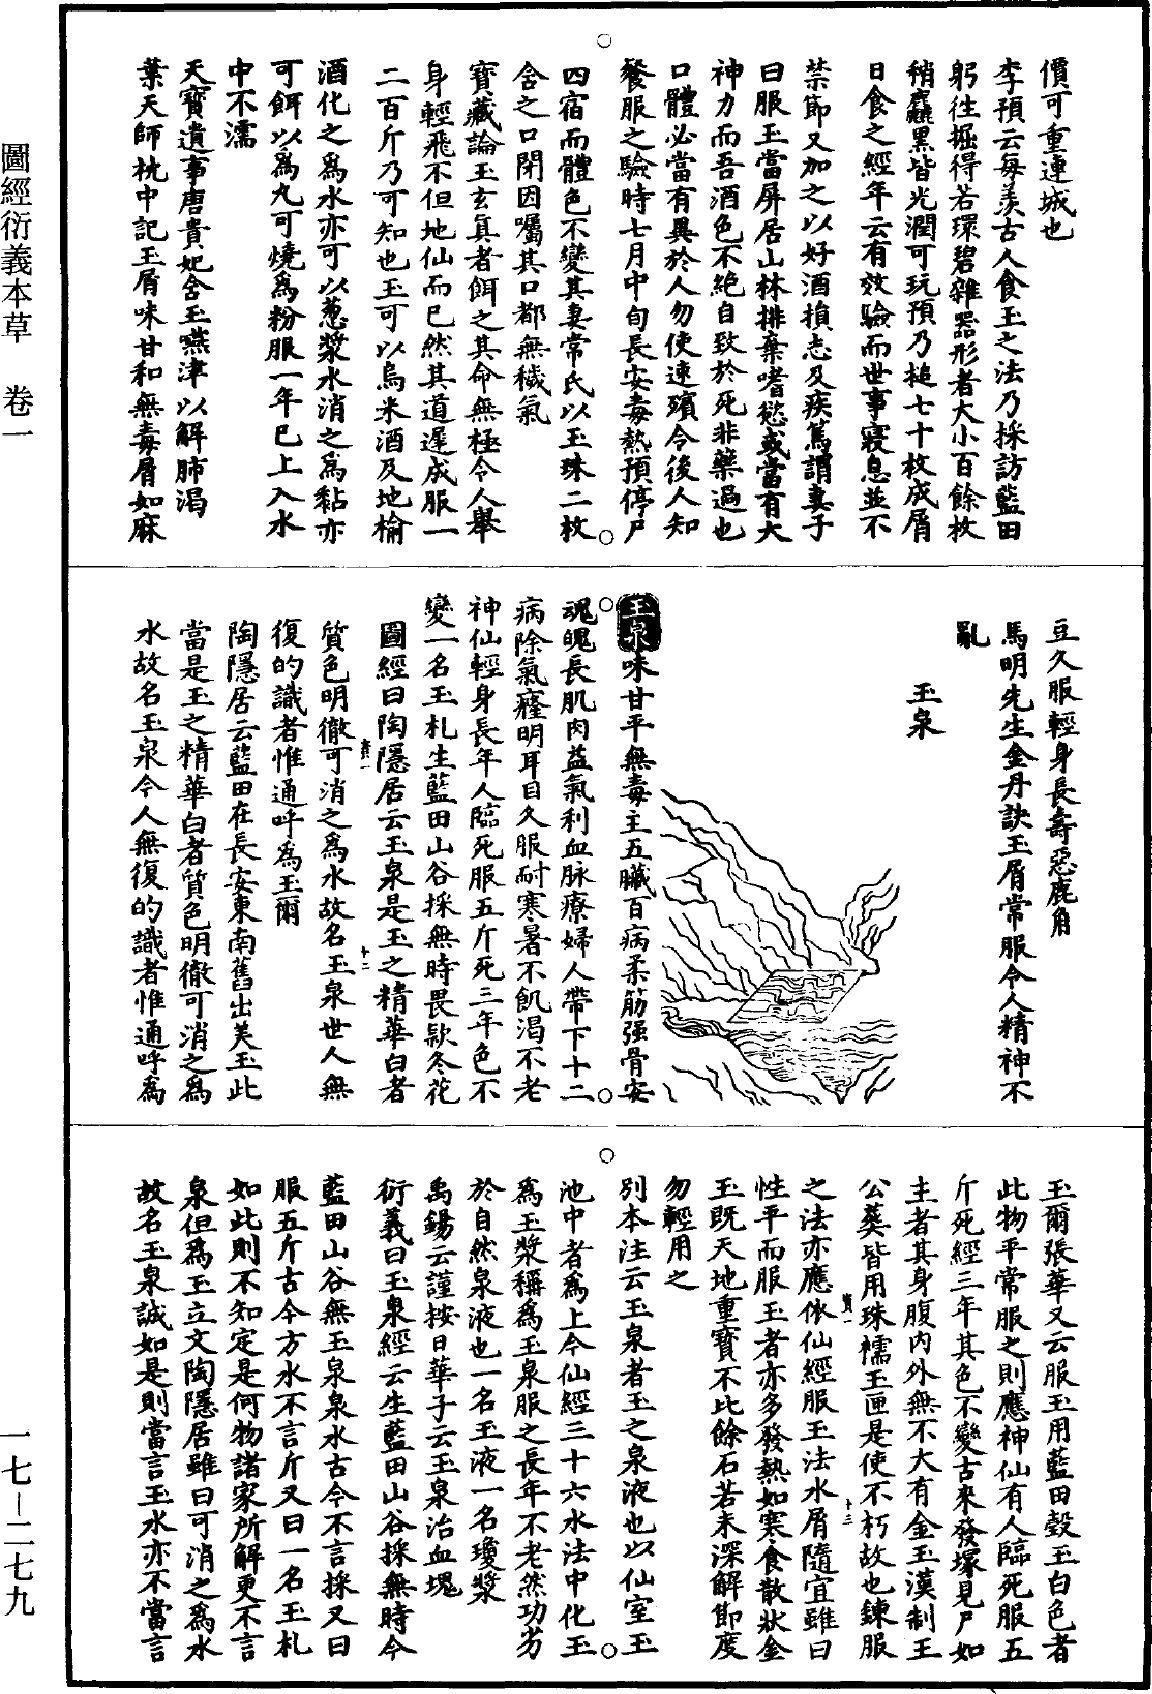 價可重連城也
李預云每羨古人食玉之法乃採訪藍田
躬往掘得若環碧雜器形者大小百餘枚
稍麤黑皆光潤可玩預乃搥七十枚成屑
日食之經年云有效驗而世事寢息並不
禁節又加之以好酒損志及疾篤謂妻子
曰服玉當屏居山林排棄嗜慾或當有大
神力而吾酒色不絕自致於死非藥過也
口體必當有異於人勿使速殯令後人知
餐服之驗時七月中旬長安毒熱預停尸
四宿而體色不變其妻常氏以玉珠二枚
含之口閉因囑其口都無穢氣
寶藏論玉玄真者餌之其命無極令人舉
身輕飛不但地仙而已然其道遲成服一
二百斤乃可知也玉可以烏米酒及地榆
酒化之爲水亦可以葱漿水消之爲黏亦
可餌以爲丸可燒爲粉服一年已上入水
中不濡
天寶遺事唐貴妃含玉嚥津以解肺渴
葉天師枕中記玉屑味甘和無毒屑如麻
豆久服輕身長壽惡鹿角
馬明先生金丹訣玉屑常服令人精神不
亂
玉泉
玉泉味甘平無毒主五臟百病柔筋强骨安
魂魄長肌肉益氣利血脉療婦人帶下十二
病除氣癃明耳目久服耐寒暑不飢渴不老
神仙輕身長年人臨死服五斤死三年色不
變一名玉札生藍田山谷採無時畏款冬花
圖經曰陶隱居云玉泉是玉之精華白者
質色明徹可消之爲水故名玉泉世人無
復的識者惟通呼爲玉爾
陶隱居云藍田在長安東南舊出美玉此
當是玉之精華白者質色明徹可消之爲
水故名玉泉今人無復的識者惟通呼爲
玉爾張華又云服玉用藍田穀玉白色者
此物平常服之則應神仙有人臨死服五
斤死經三年其色不變古來發塚見尸如
主者其身腹內外無不大有金玉漢制王
公葬皆用珠襦玉匣是使不朽故也鍊服
之法亦應依仙經服玉法水屑隨宜雖曰
性平而服玉者亦多發熱如寒食散狀金
玉既天地重寶不比餘石若未深解節度
勿輕用之
別本注云玉泉者玉之泉液也以仙室玉
池中者爲上今仙經三十六水法中化玉
爲玉漿稱爲玉泉服之長年不老然功劣
於自然泉液也一名玉液一名瓊漿
禹錫云謹按日華子云玉泉治血塊
衍義曰玉泉經云生藍田山谷採無時今
藍田山谷無玉泉泉水古今不言採又曰
服五斤古今方水不言斤又曰一名玉札
如此則不知定是何物諸家所解更不言
泉但爲玉立文陶隱居雖曰可消之爲水
故名玉泉誠如是則當言玉水亦不當言
圖經衍義本草 卷一
一七—二七九